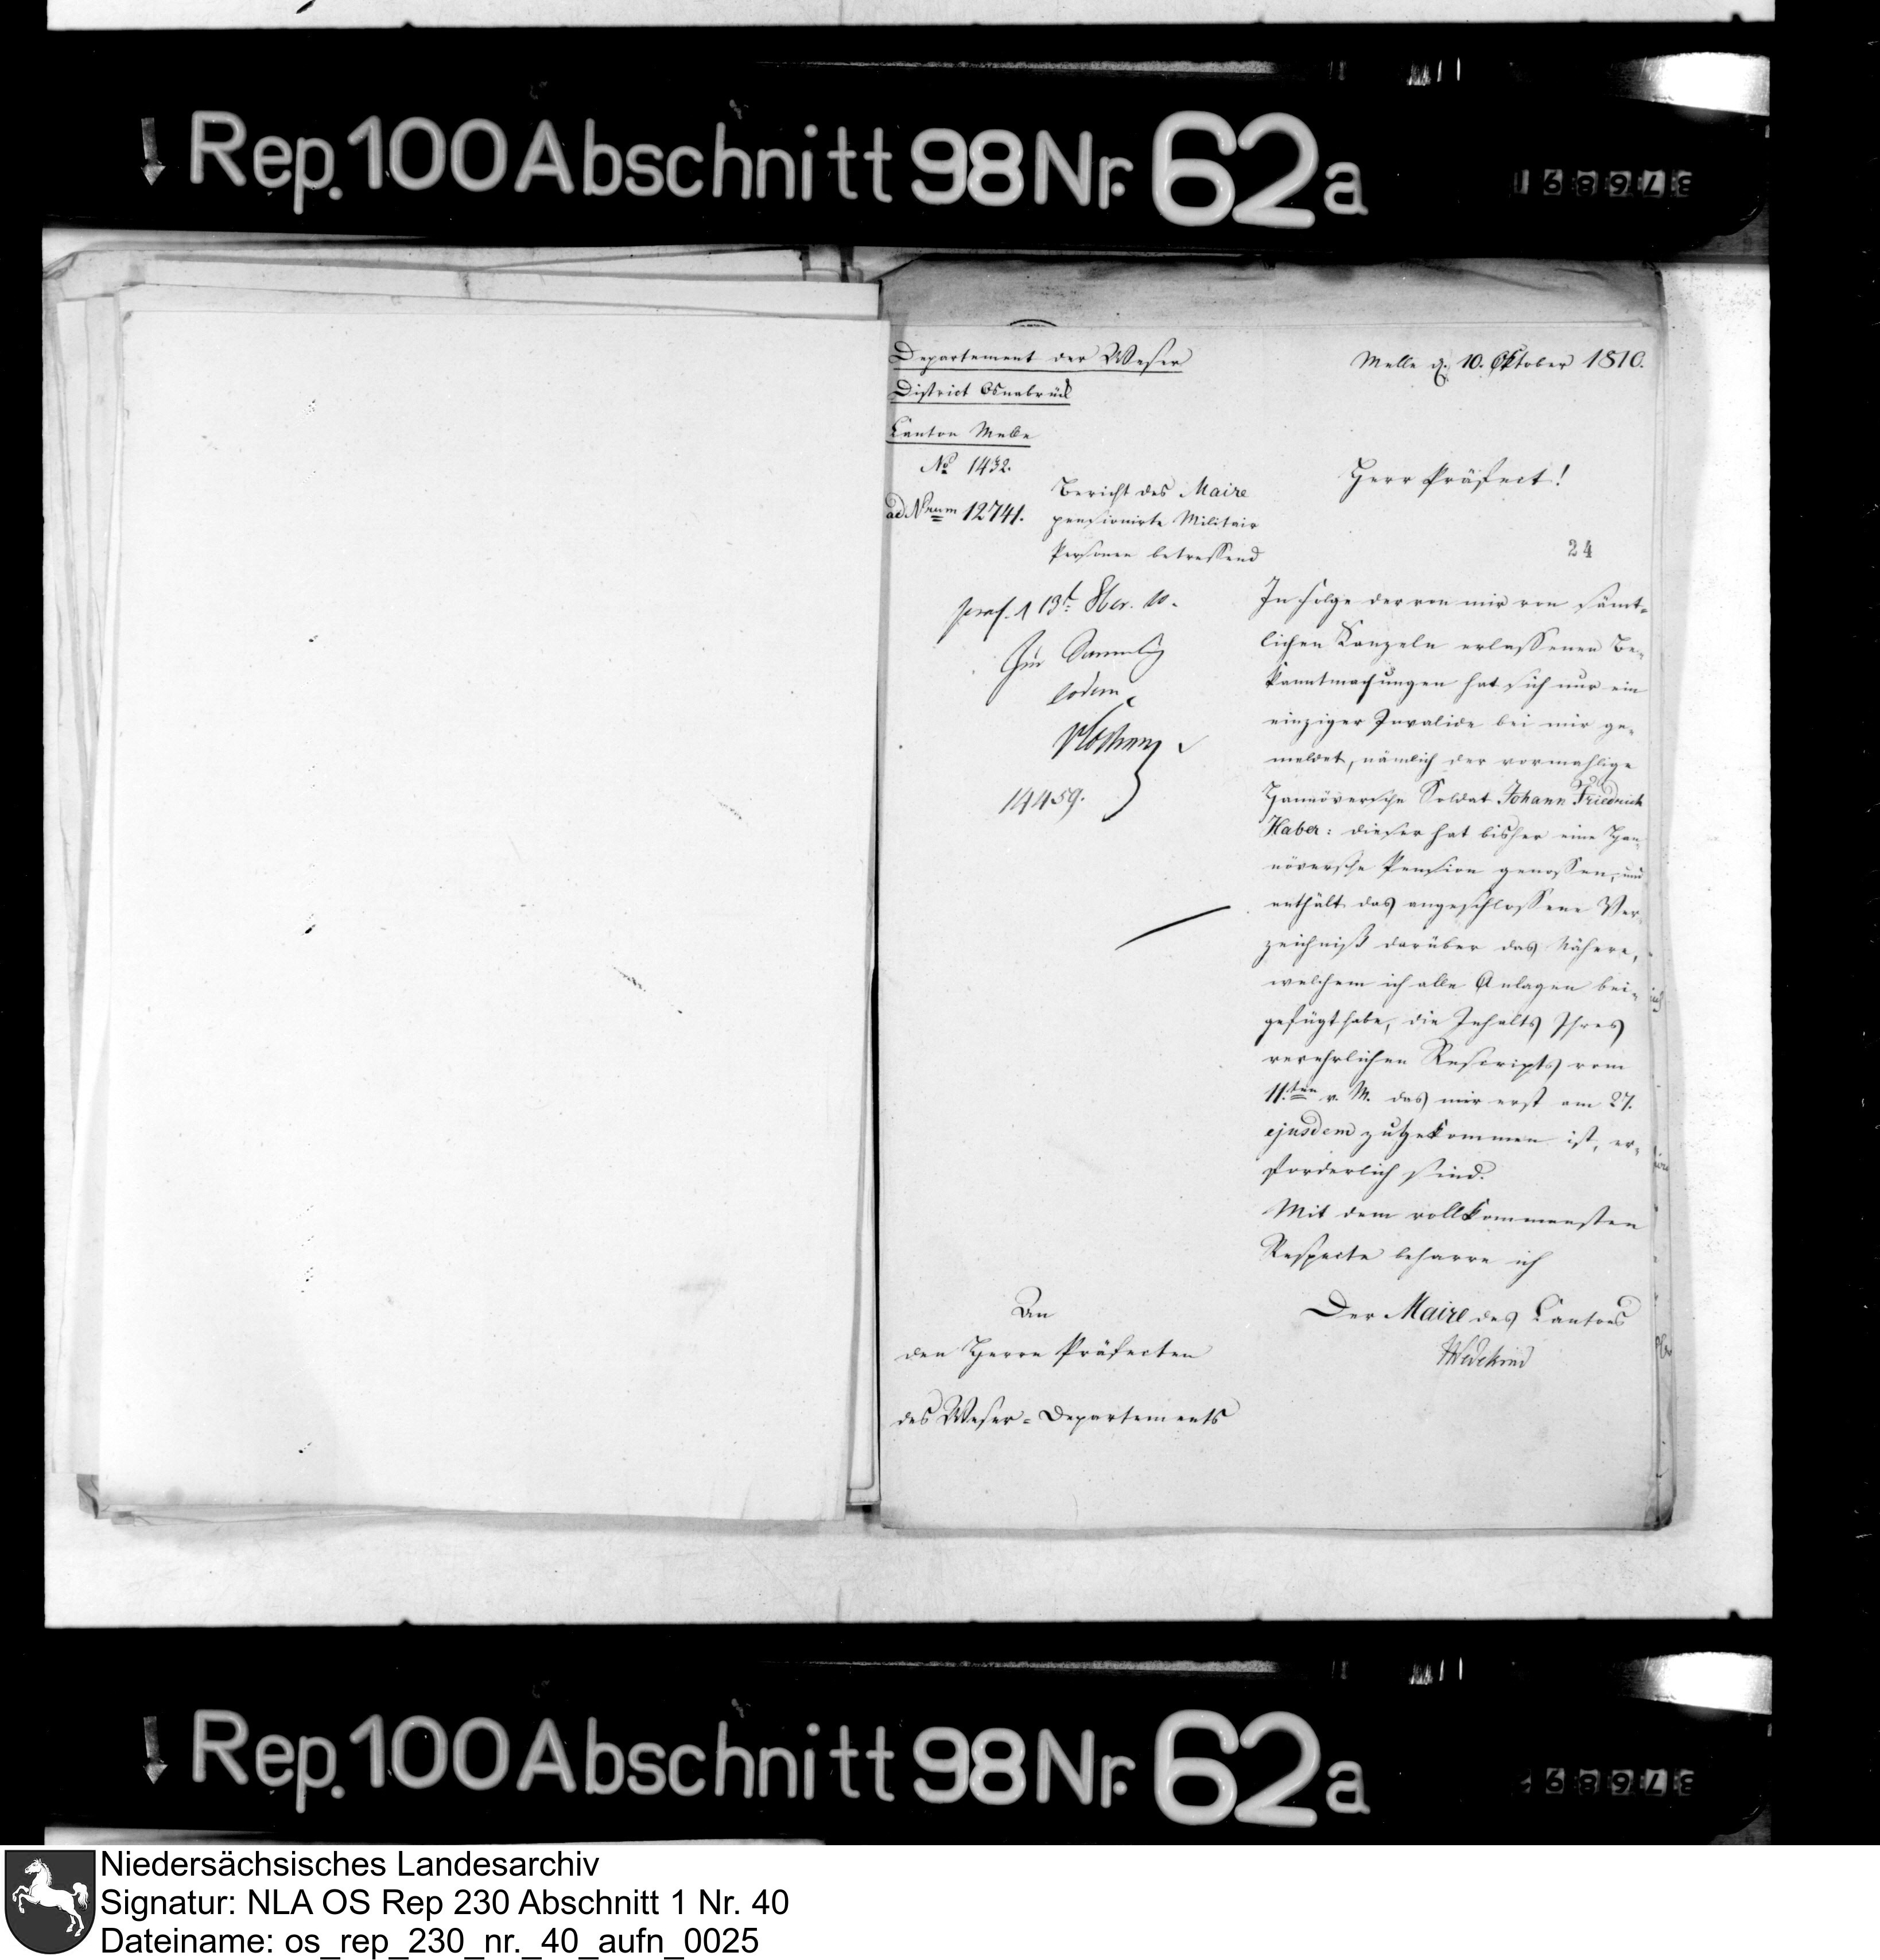 Rep. 100 Abschnitt 98 Nr. 62a
Departement der Weser
District Osnabrück
Canton Melle
No 1432.
ad Nrum 12741.
Bericht des Maire
pensionirte Militair
Personen betreffend
Melle d. 10. Oktober 1810.
Herr Präfect!
24
praes. d 13t 8ber. 10.
Zur
eodem
14459.
In Folge der von mir von sämt-
lichen Kanzeln erlassenen Be-
kanntmachungen hat sich nur ein
einziger Invalide bei mir ge-
meldet, nämlich der vormahlige
Hannöversche Soldat Johann Friedrich
Haber: dieser hat bisher eine Han-
növersche Pension genossen, und
enthält das angeschlossene Ver-
zeichniß darüber das Nähere,
welchem ich alle Anlagen bei-
gefügt habe, die Inhalts Ihres
verehrlichen Rescripts vom
11.ten v. M. das mir erst am 27.
ejusdem zugekommen ist, er-
forderlich sind.
Mit dem vollkommensten
Respecte beharre ich
Der Maire des Cantons
Wedekind
An
den Herrn Präfecten
des Weser-Departements
Rep. 100 Abschnitt 98 Nr. 62a
Niedersächsisches Landesarchiv
Signatur: NLA OS Rep 230 Abschnitt 1 Nr. 40
Dateiname: os_rep_230_nr._40_aufn_0025